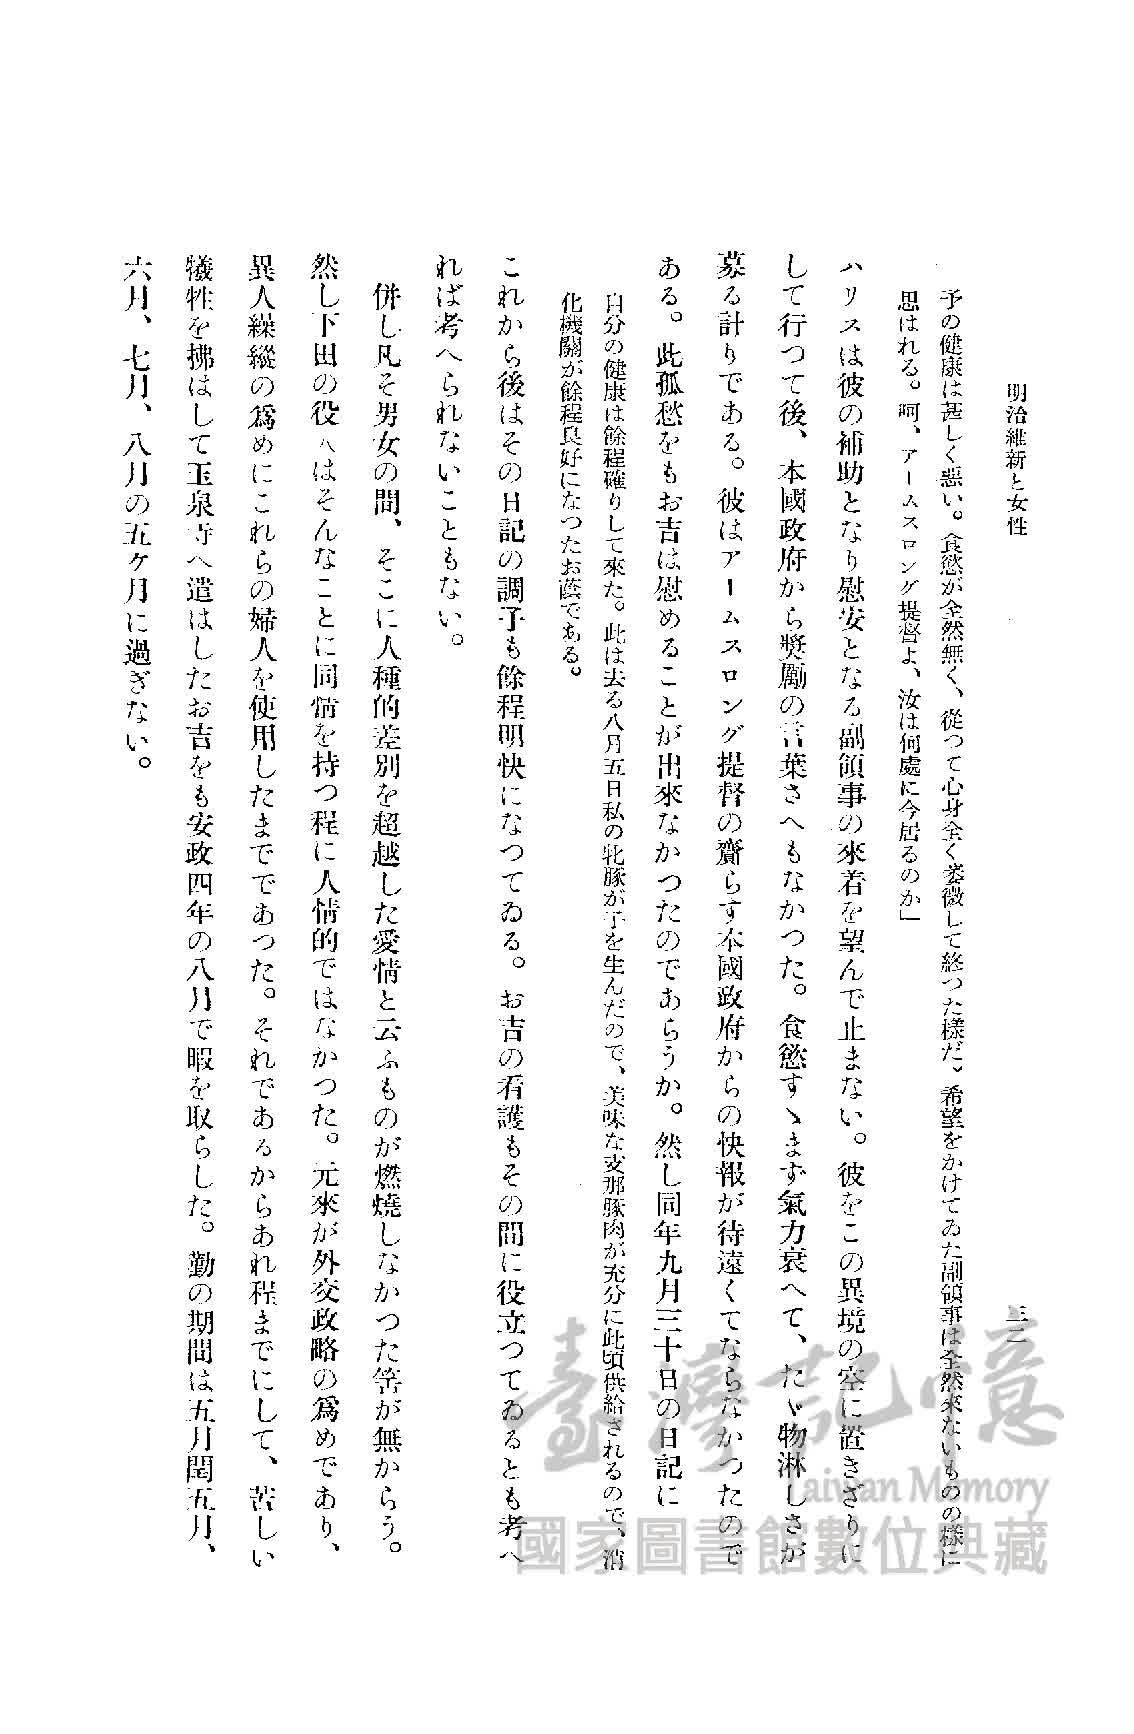 明治維新と女性
三二
予の健康は甚しく悪い。食慾が全然無く、從つて心身全く萎微して終つた樣だ。希望をかけてゐた副領事は全然來ないものの樣に
思はれる。呵、アームスロング提督よ、汝は何處に今居るのか」
ハリスは彼の補助となり慰安となる副領事の來着を望んで止まない。彼をこの異境の空に置きざりに
して行つて後、本國政府から奬勵の言葉さへもなかつた。食慾すゝまず氣力衰へて、たゞ物淋しさが
募る計りである。彼はアームスロング提督の齎らす本國政府からの快報が待遠くてならなかつたので
ある。此孤愁をもお吉は慰めることが出來なかつたのであらうか。然し同年九月三十日の日記に
自分の健康は餘程確りして來た。此は去る八月五日私の牝豚が子を生んだので、美味な支那豚肉が充分に此頃供給されるので、消
化機關が餘程良好になつたお蔭である。
これから後はその日記の調子も餘程明快になつてゐる。お吉の看護もその間に役立つてゐるとも考へ
れば考へられないこともない。
併し凡そ男女の間、そこに人種的差別を超越した愛情と云ふものが燃燒しなかつた筈が無からう。
然し下田の役人はそんなことに同情を持つ程に人情的ではなかつた。元來が外交政略の爲めであり、
異人繰縱の爲めにこれらの婦人を使用したまでであつた。それであるからあれ程までにして、苦しい
犧牲を拂はして玉泉寺へ遣はしたお吉をも安政四年の八月で暇を取らした。勤の期間は五月閏五月、
六月、七月、八月の五ヶ月に過ぎない。
臺灣記憶
Taiwan Memory
國家圖書館數位典藏